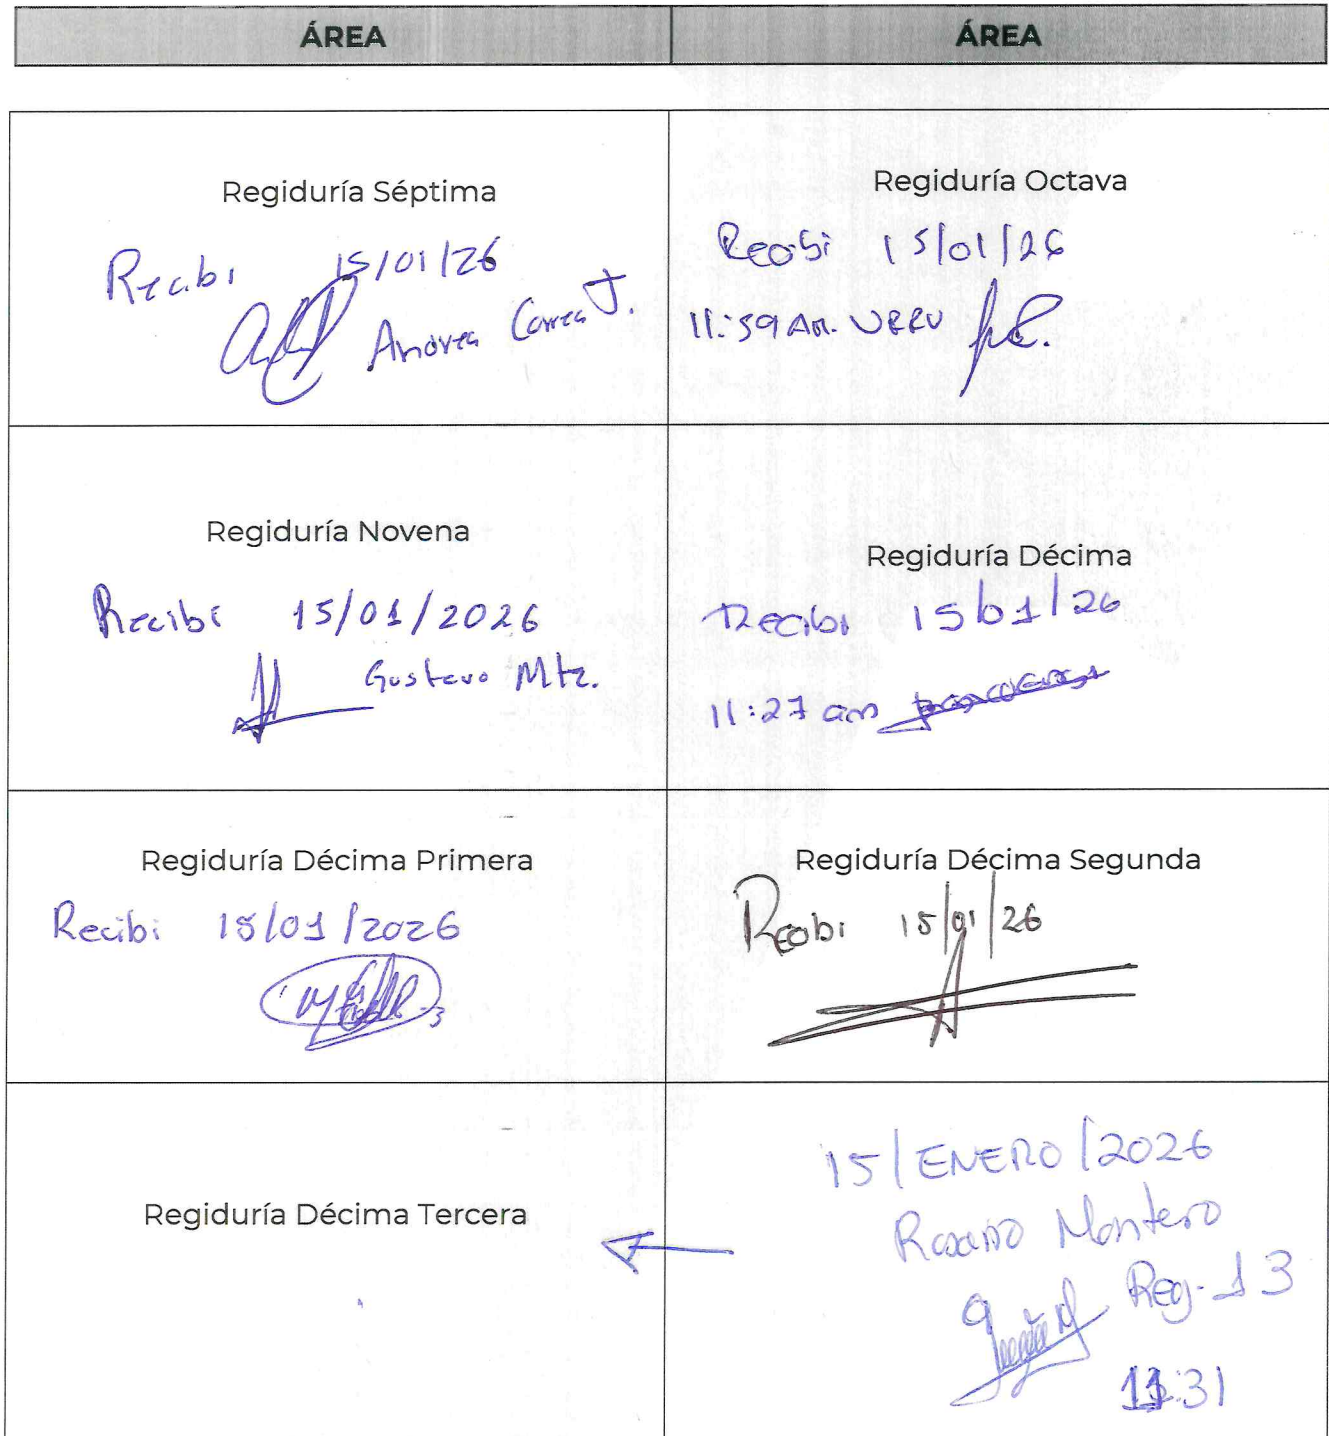 ÁREA
ÁREA
Regiduría Séptima
Recibi 15/01/26
Andrea Correa J.
Regiduría Octava
Recibi 15/01/26
11:59 Am.
Regiduría Novena
Recibi 15/01/2026
Gustavo Mtz.
Regiduría Décima
Recibi 15/01/26
11:27 am
Regiduría Décima Primera
Recibi 15/01/2026
Regiduría Décima Segunda
Recibi 15/01/26
Regiduría Décima Tercera
15/ENERO/2026
Rosario Montero
Reg-13
11:31